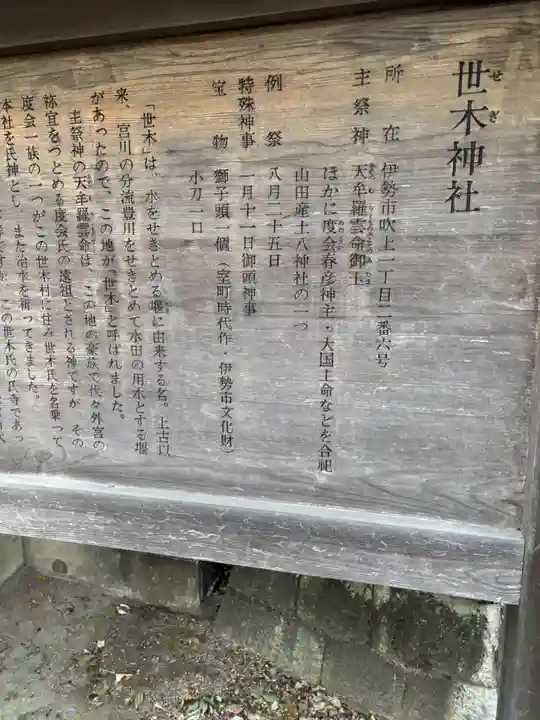 世木神社
せぎ
所在 伊勢市吹上一丁目二番六号
主祭神 天牟羅雲命御玉
ほかに度会春彦神主・大国主命などを合祀
山田産土八神社の一つ
例祭 八月二十五日
特殊神事 一月十一日御頭神事
宝物 獅子頭一個(室町時代作・伊勢市文化財)
小刀一口
「世木」は、水をせきとめる堰に由来する名。上古以
来、宮川の分流豊川をせきとめて水田の用水とする堰
があったので、この地が「世木」と呼ばれました。
主祭神の天牟羅雲命は、この地の豪族で代々外宮の
祢宜をつとめる度会氏の遠祖とされる神ですが、その
度会一族の一つがこの世木村に住み世木氏を名乗って
本社を氏神とし、また治水を祈ってきました。
この世木氏の氏寺であっ